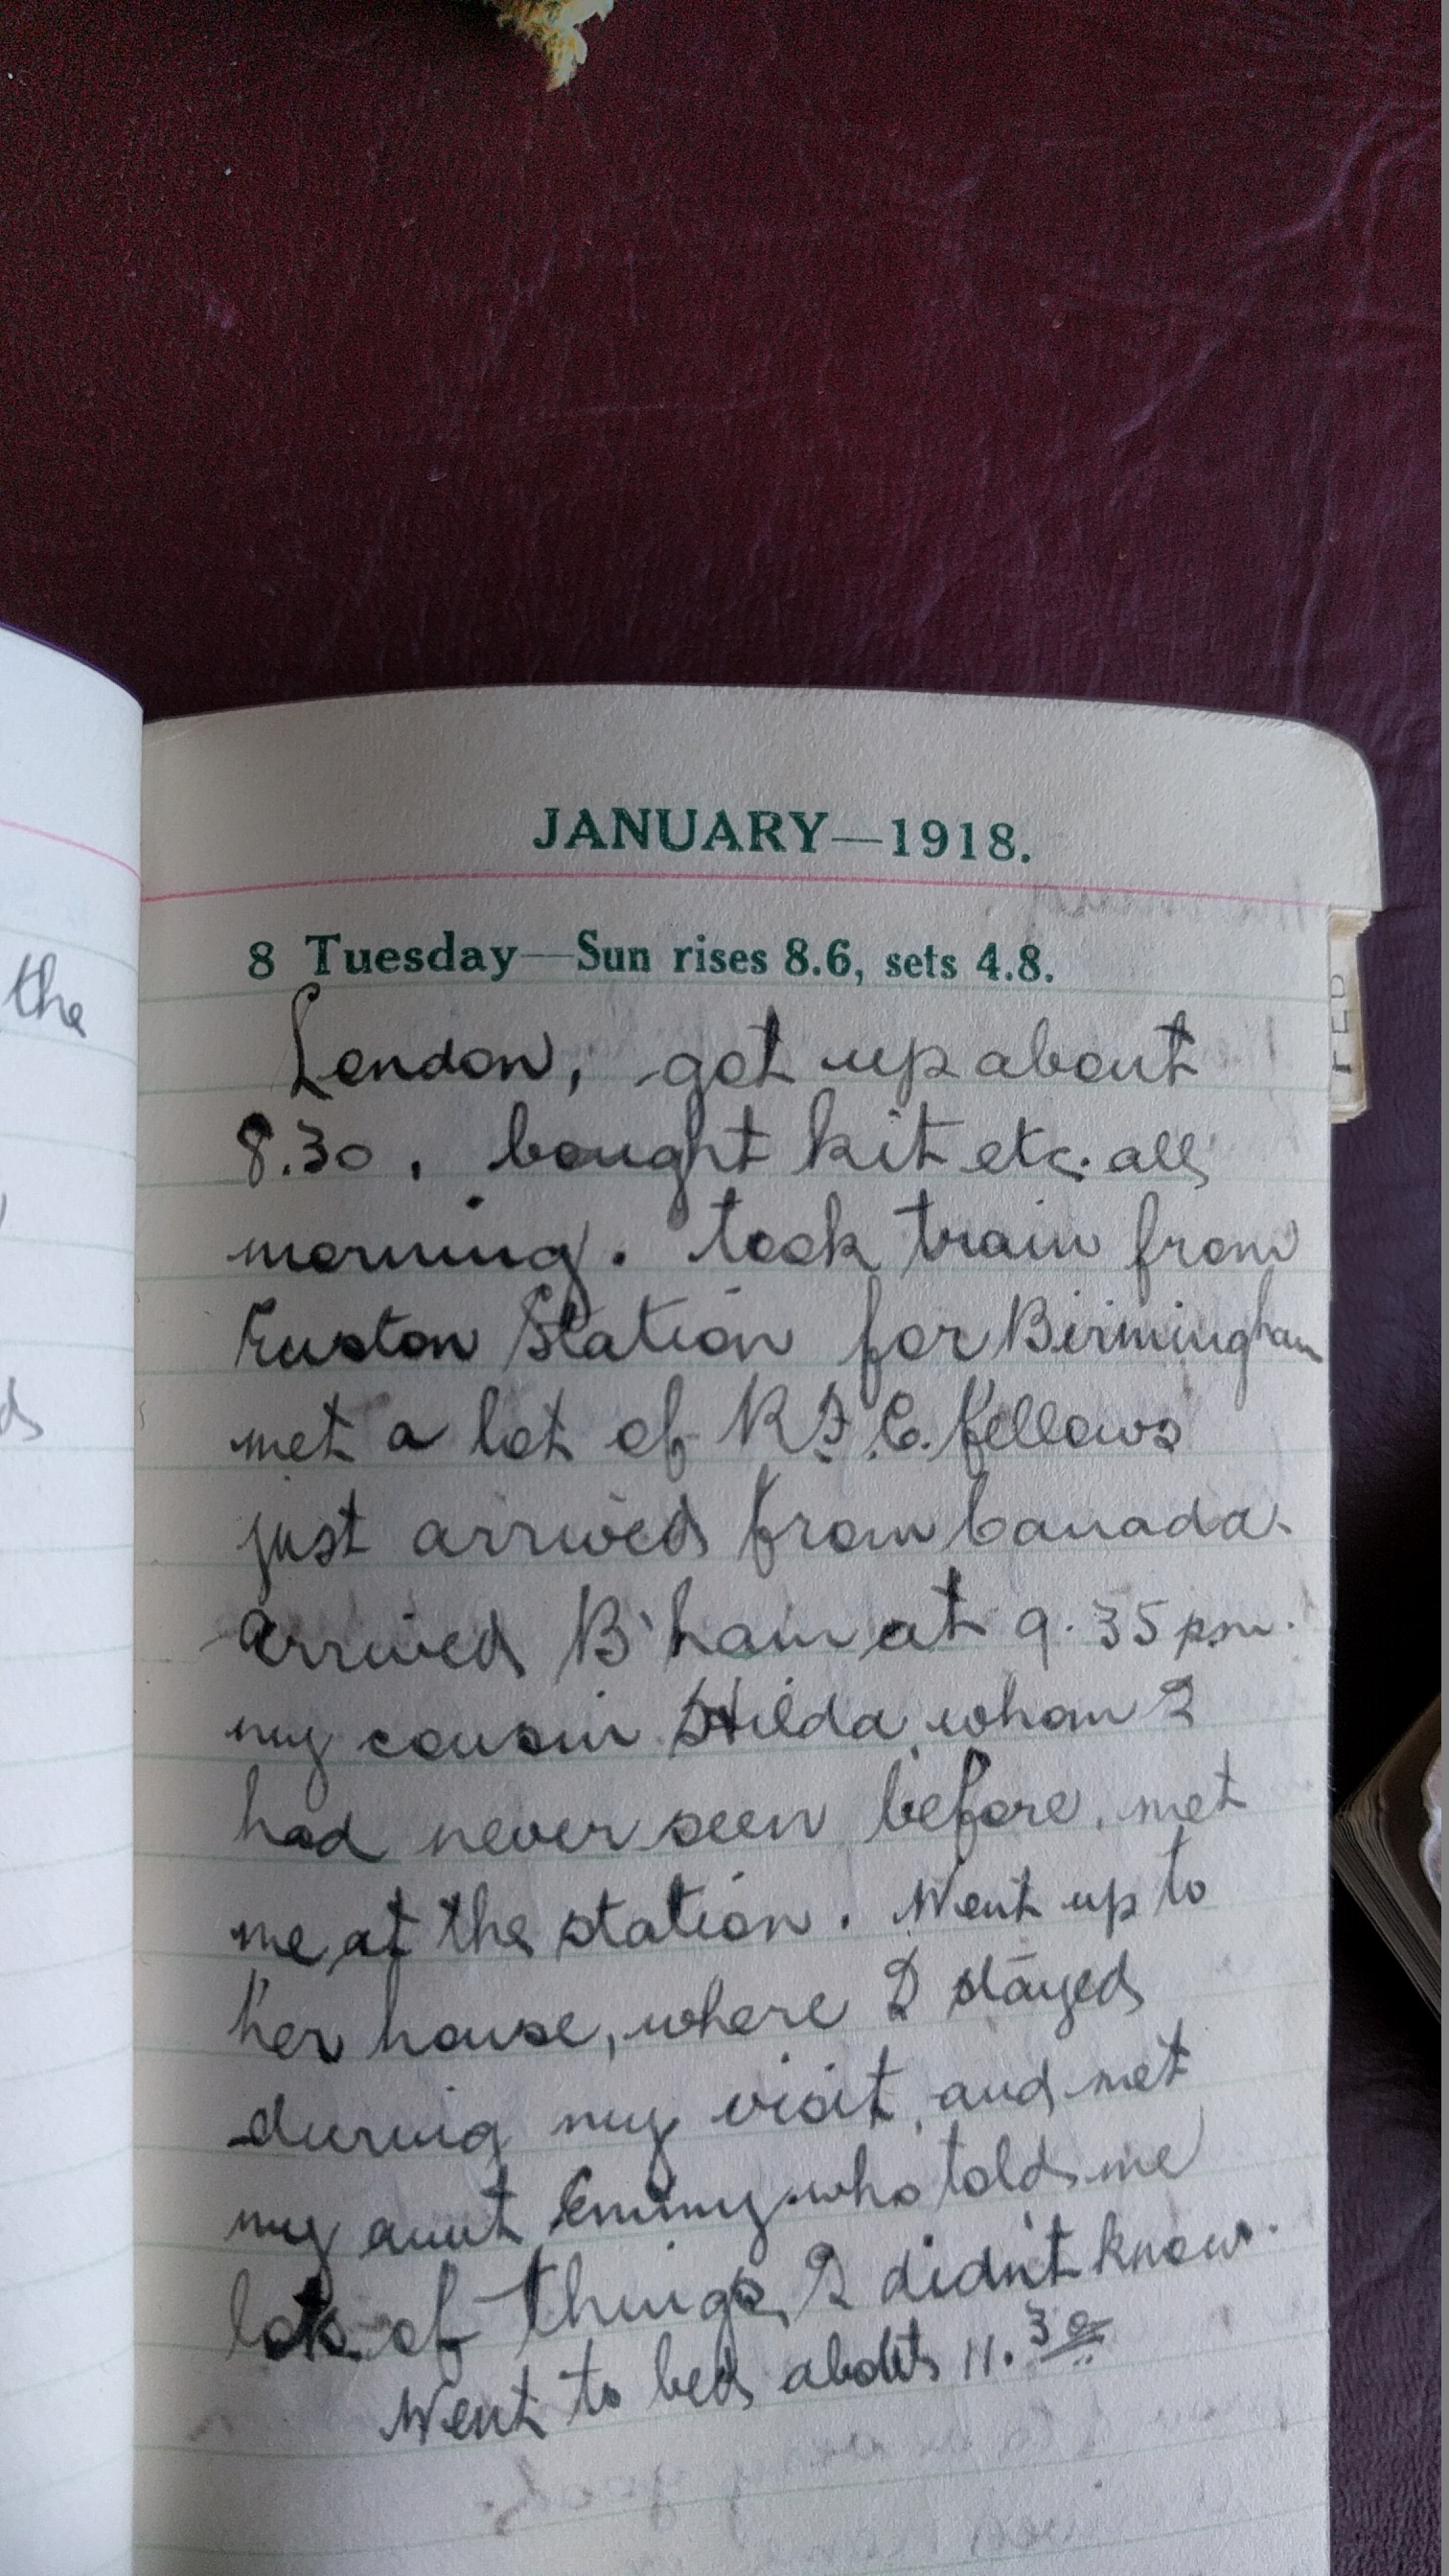 the
ds
JANUARY—1918.
8 Tuesday—Sun rises 8.6, sets 4.8.
London, got up about
8.30, bought kit etc. all
morning. took train from
Euston Station for Birmingham
met a lot of R.F.C. fellows
just arrived from Canada.
Arrived B'ham at 9.35 pm.
my cousin Hilda whom I
had never seen before, met
me at the station. Went up to
her house, where I stayed
during my visit, and met
my aunt Emmy who told me
lots of things I didn't know.
Went to bed about 11.30
FEB